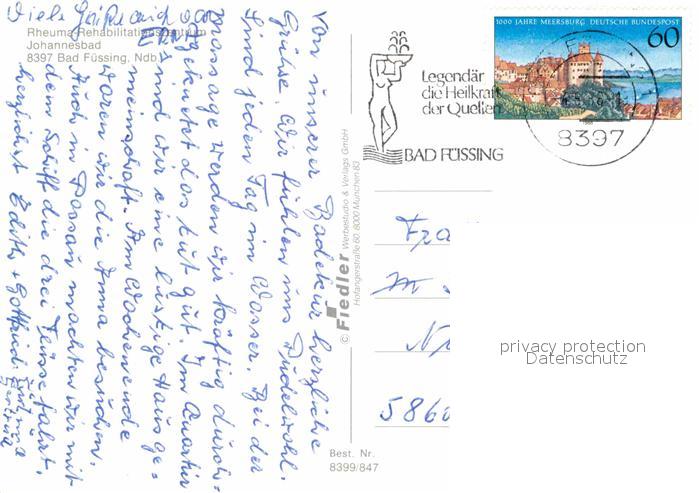 Rheuma-Rehabilitationszentrum
Johannesbad
8397 Bad Füssing, Ndb.
Von unserer Badekur herzliche
Grüße. Wir fühlen uns Pudelwohl.
Sind jeden Tag im Wasser. Bei der
Massage werden wir kräftig durch-
geknetet das tut gut. Im Quartier
sind wir eine lustige Hausge-
meinschaft. Am Wochenende
waren wir die Anna besuchen.
Auch in Passau machten wir mit
dem Schiff die drei Flüsse fahrt.
herzlichst Edith + Gottfried
Viele Grüße auch
Gertrud
© Fiedler Werbestudio & Verlags GmbH
Hofangerstraße 60, 8000 München 83
Best. Nr.
8399/847
1000 JAHRE MEERSBURG DEUTSCHE BUNDESPOST
60
Legendär
die Heilkraft
der Quellen
BAD FÜSSING
8397
Fra
586
privacy protection
Datenschutz